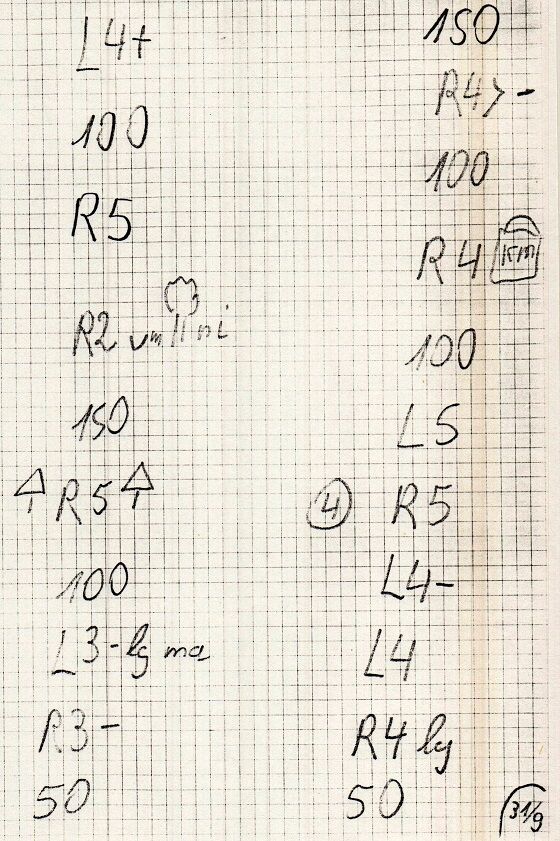 L4+
100
R5
R2 vm ni
150
R5
100
L3- lg ma
R3-
50
150
R4>-
100
R4 Km
100
L5
4 R5
L4-
L4
R4 lg
50
31/9